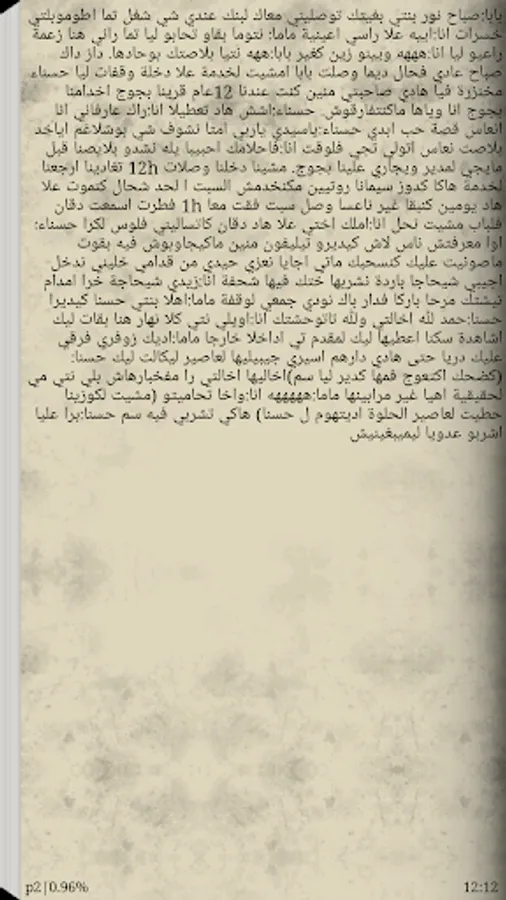 بابا:صباح نور بنتي بغيتك توصليني معاك لبنك عندي شي شغل تما اطوموبلتي
خسرات انا:اييه علا راسي اعينية ماما: نتوما بقاو تحابو ليا تما راني هنا زعمة
راعيو ليا انا:هههه وييتو زين كغير بابا:ههه نتيا بلاصتك بوحادها. داز داك
صباح عادي فحال ديما وصلت بابا امشيت لخدمة علا دخلة وقفات ليا حسناء
مخنزرة فيا هادي صاحبتي منين كنت عندنا 12عام قرينا بجوج اخدامنا
بجوج انا وياها ماكنتفارقوش. حسناء:اشش هاد تعطيلا انا:راك عارفاني انا
انعاس قصة حب ابدي حسناء:ياسيدي ياربي امتا نشوف شي بوشلاغم اياخد
بلاصت نعاس اتولي تجي فلوقت انا:فاحلامك احبيبا يله نشدو بلايصنا قبل
مايجي لمدير ويجاري علينا بجوج. مشينا دخلنا وصلات 12h تغادينا ارجعنا
لخدمة هاكا كدوز سيمانا روتيين مكنخدمش السبت ا لحد شحال كنموت علا
هاد يومين كنبقا غير ناعسا وصل سبت فقت معا 1h فطرت اسمعت دقان
فلباب مشيت نحل انا:املك اختي علا هاد دقان كاتساليني فلوس لكرا حسناء:
اوا معرفتش ناس لاش كيديرو تيليفون منين ماكيجاوبوش فيه بقوت
ماصونيت عليك كنسحبك ماتي اجايا نعزي حيدي من قدامي خليني ندخل
اجيبي شيحاجا باردة نشربها ختك فيها شحفة انا:زيدي شيحاجة خرا امدام
نيشتك مرحا باركا فدار ياك نودي جمعي لوقفة ماما:اهلا بنتي حسنا كيديرا
حسنا:حمد لله اخالتي ولله تاتوحشتك انا:اويلي نتي كلا نهار هنا بقات ليك
اشاهدة سكنا اعطيها ليك لمقدم تي اداخلا خارجا ماما:اديك زوفري فرقي
عليك دريا حتى هادي دارهم اسيري جيبيليها لعاصير ليكالت ليك حسنا:
(كضحك اكتعوج فمها كدير ليا سم)اخاليها اخالتي را مفخبارهاش بلي نتي مي
لحقيقية اهيا غير مرابينها ماما:هههههه انا:واخا تحاميتو (مشيت لكوزينا
حطيت لعاصير الحلوة اديتهوم ل حسنا) هاكي تشربي فيه سم حسنا:برا عليا
اشربو عدويا ليميبغينيش
p2|0.96%
12:12